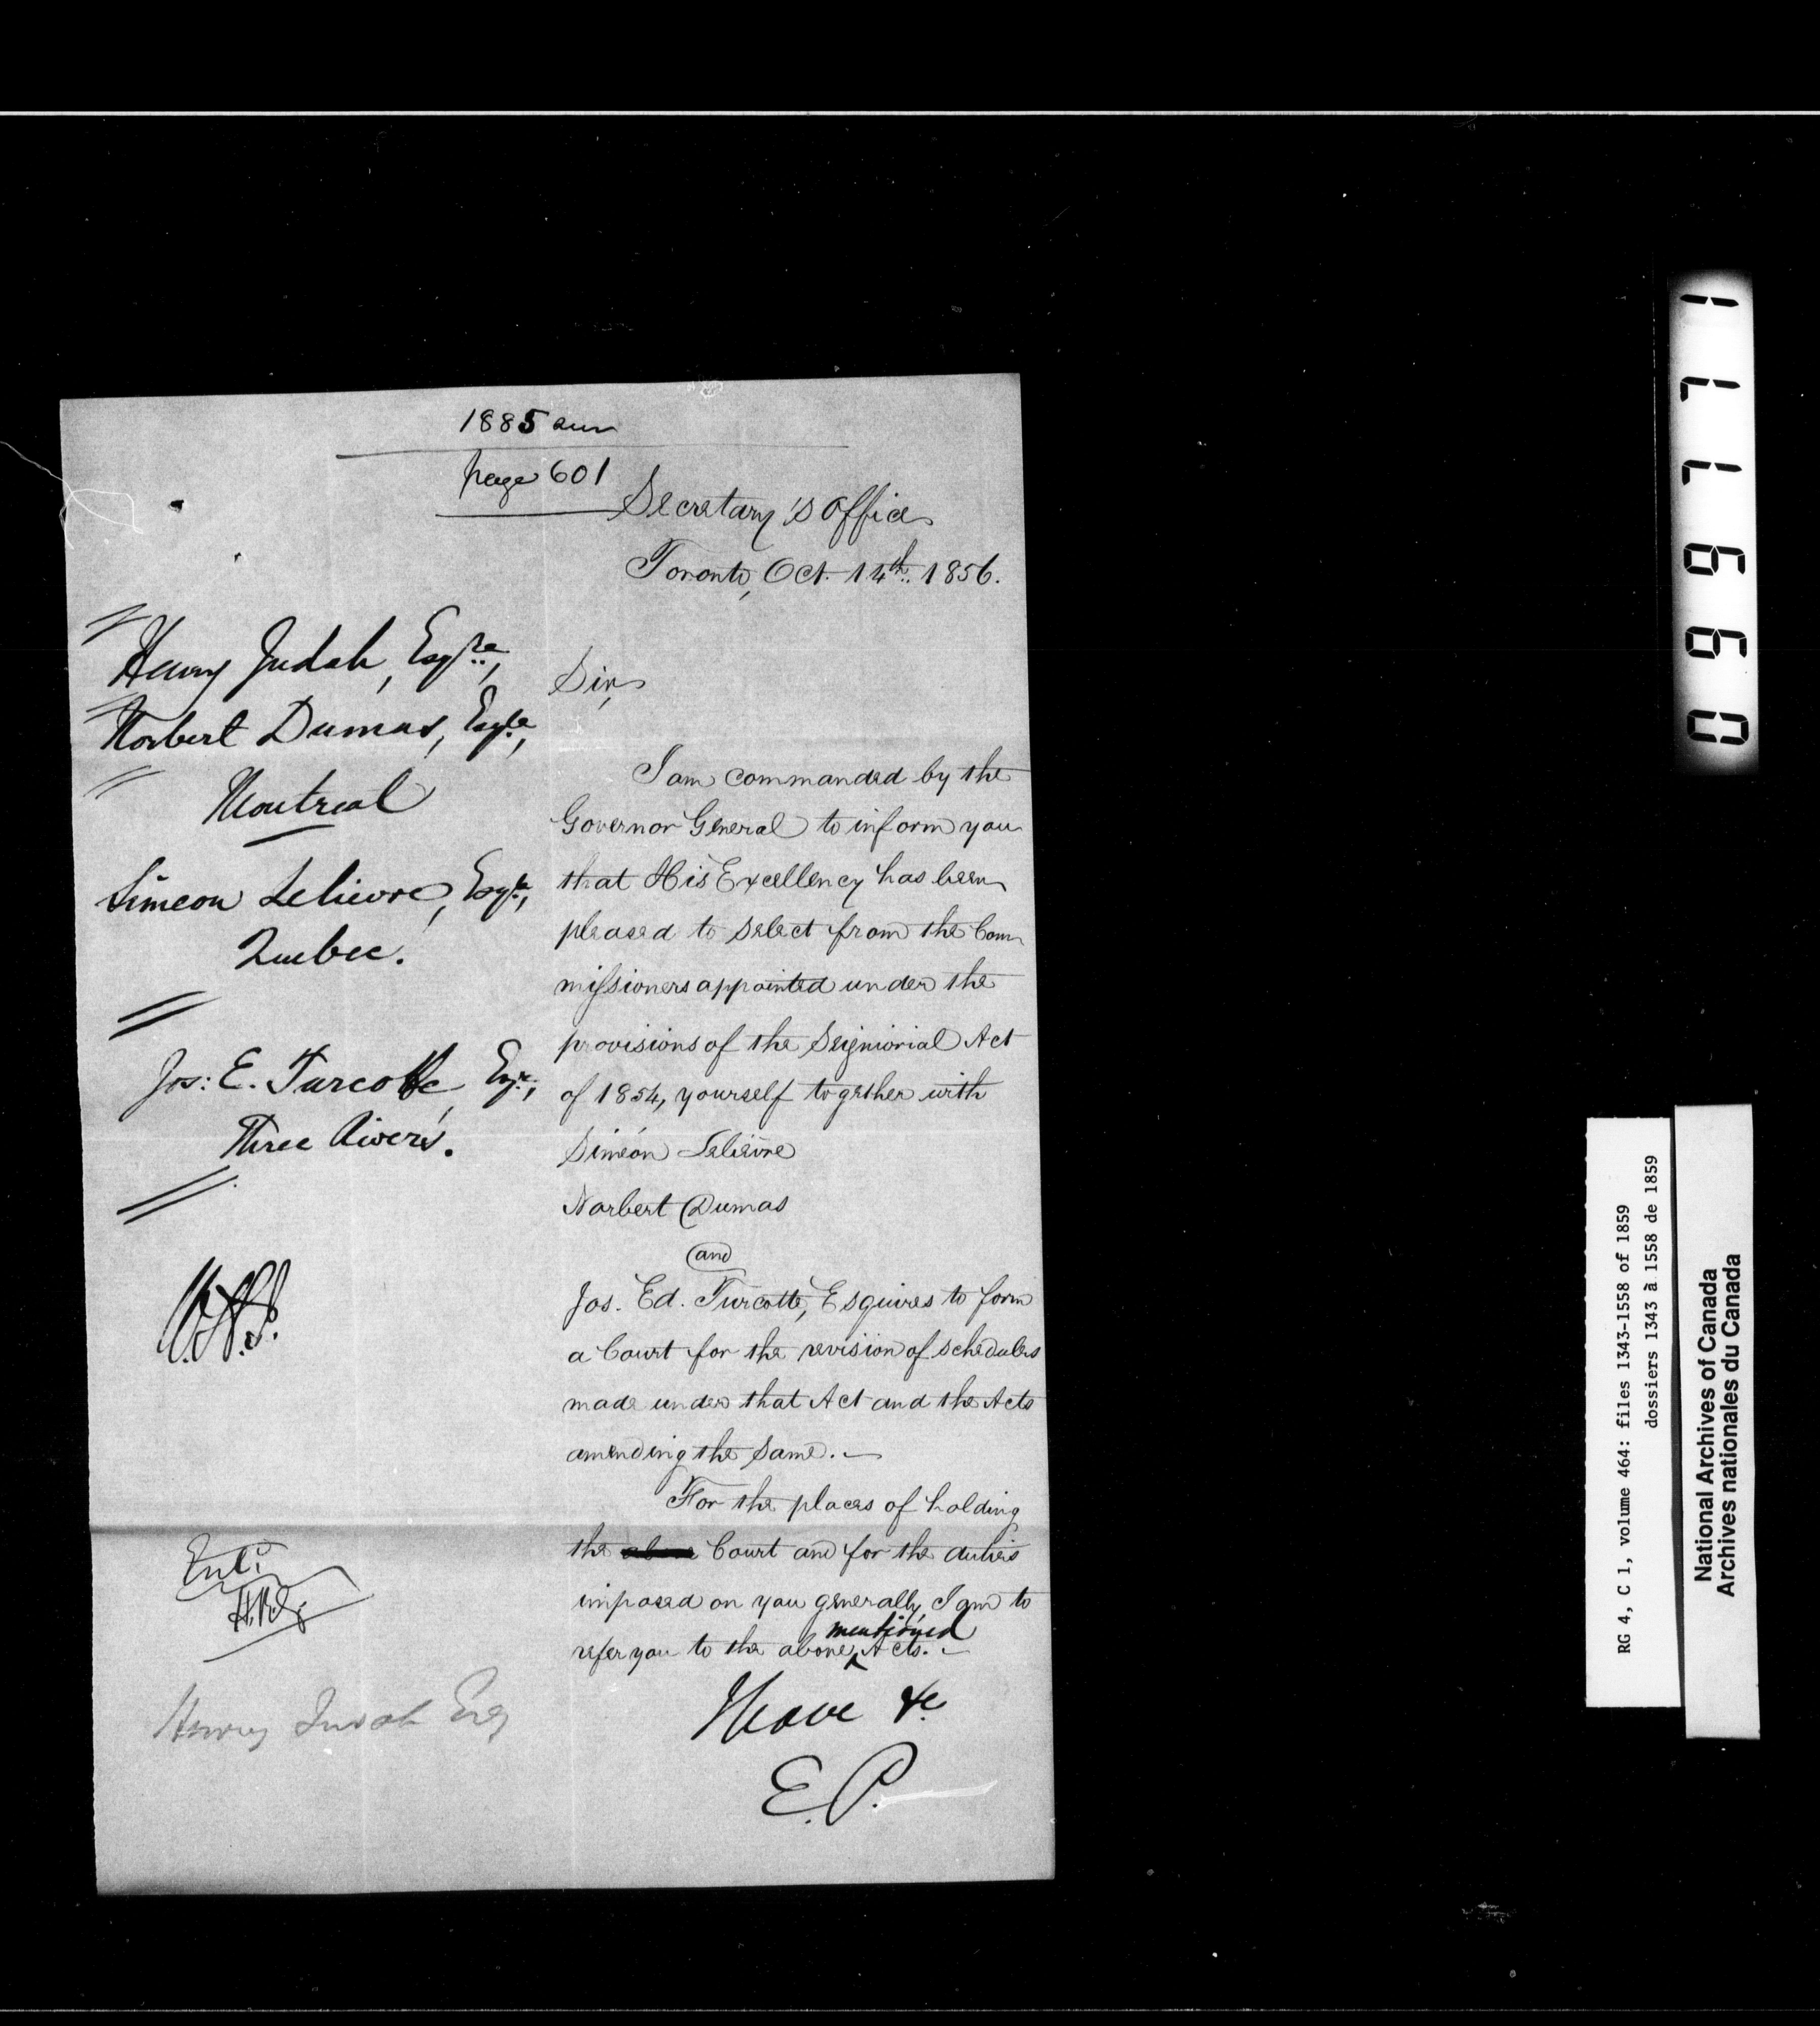 1885
page 601
Secretary's Office
Toronto, Oct. 14th. 1856.
Henry Judah, Esqre,
Norbert Dumas, Esqre,
Montreal
Simeon Lelievre, Esqre,
Quebec.
Jos: E. Turcotte, Esqr.,
Three Rivers.
Entd.
Henry Judah Esq
Sir,
I am commanded by the
Governor General to inform you
that His Excellency has been
pleased to select from the Com
missioners appointed under the
provisions of the Seigniorial Act
of 1854, yourself together with
Siméon Lelièvre
Norbert Dumas
and
Jos. Ed. Turcotte, Esquires to form
a Court for the revision of schedules
made under that Act and the Acts
amending the same. —
For the places of holding
the above Court and for the duties
imposed on you generally, I am to
refer you to the above mentioned Acts. —
I have &c
E.P.
096771
RG 4, C 1, volume 464: files 1343-1558 of 1859
dossiers 1343 à 1558 de 1859
National Archives of Canada
Archives nationales du Canada